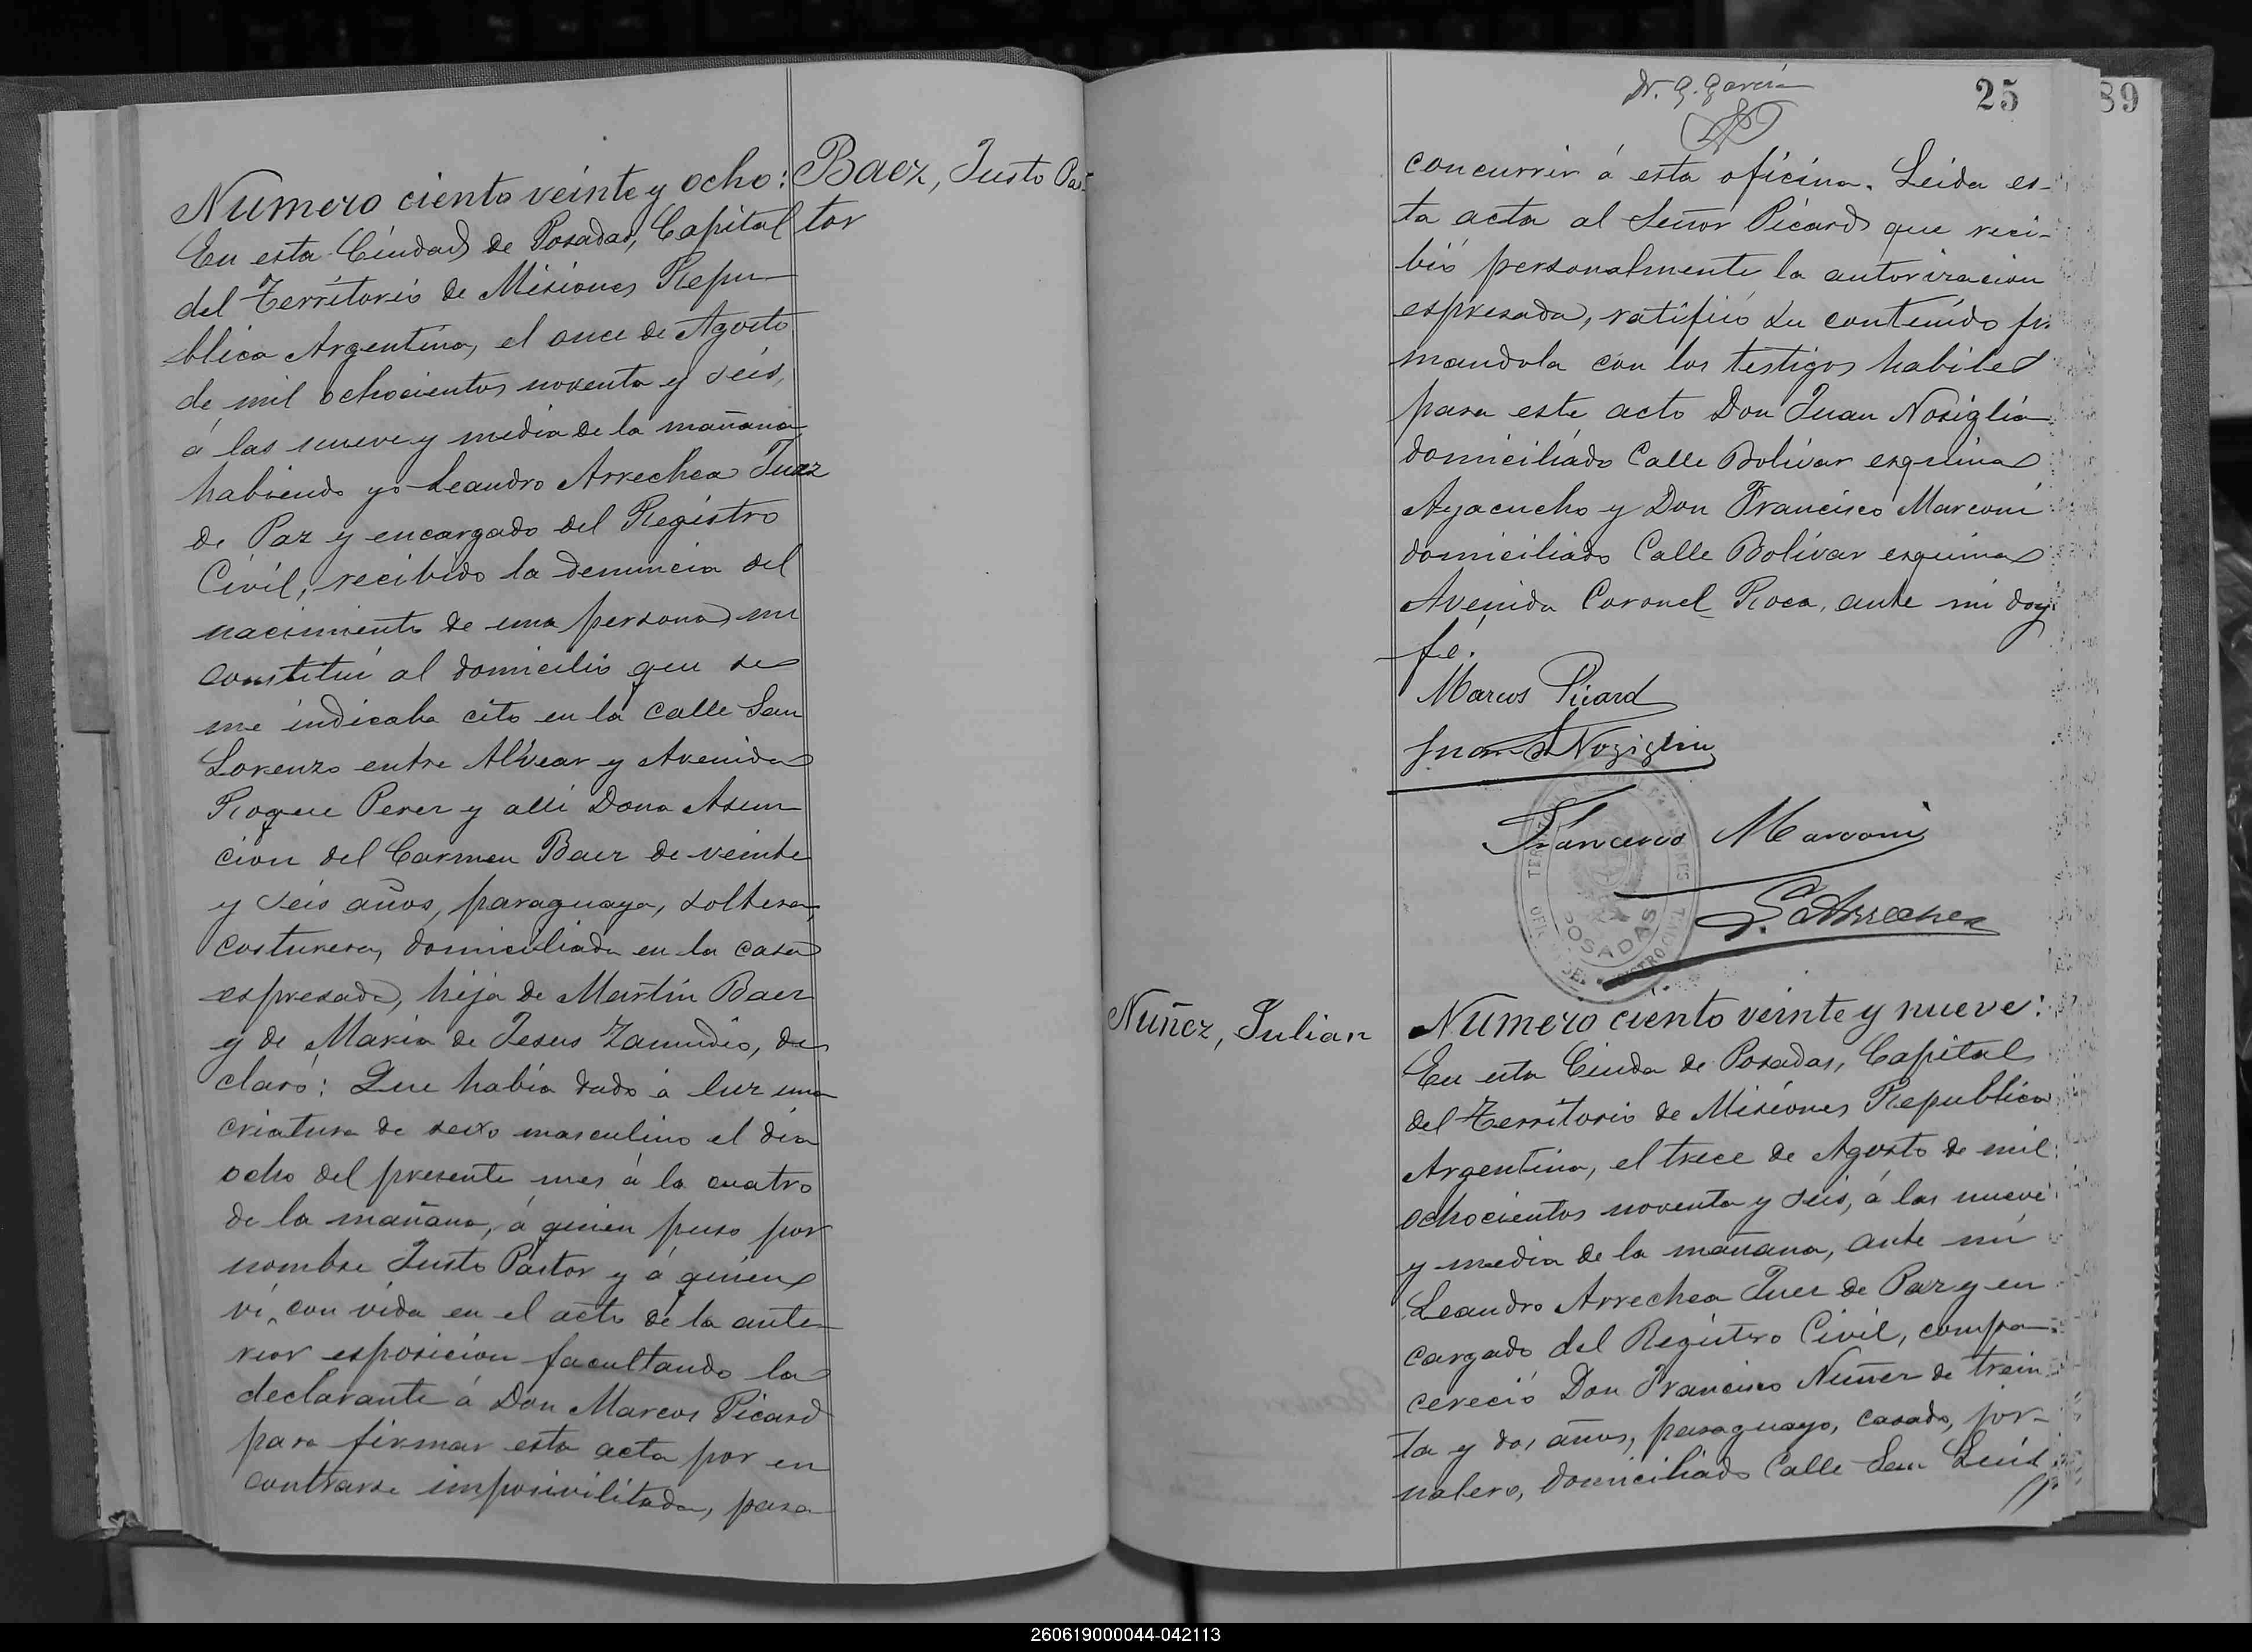 Numero ciento veinte y ocho:
Baez, Justo Pas-
tor
En esta Ciudad de Posadas, Capital
del Territorio de Misiones Repu-
blica Argentina, el once de Agosto
de mil ochocientos noventa y seis,
á las nueve y media de la mañana
habiendo yo Leandro Arrechea Juez
de Paz y encargado del Registro
Civil, recibido la denuncia del
nacimiento de una persona, me
constitui al domicilio que se
me indicaba cito en la calle San
Lorenzo entre Alvear y Avenida
Roque Perez y alli Dona Asun
cion del Carmen Baez de veinte
y seis años, paraguaya, soltera,
costurera, domiciliada en la casa
espresada, hija de Martin Baez
y de Maria de Jesus Zamudio, de
claró: Que habia dado á luz una
criatura de sexo masculino el dia
ocho del presente mes á la cuatro
de la mañana, á quien puso por
nombre Justo Pastor y á quien
vi con vida en el acto de la ante
rior esposicion facultando la
declarante á Don Marcos Picard
para firmar esta acta por en
contrarse imposivilitada, para
Dr. G. Garcia
25
89
concurrir á esta oficina. Leida es-
ta acta al Señor Picard que reci-
bió personalmente la autorizacion
espresada, ratificó su contenido fir
mandola con los testigos habiles
para este acto Don Juan Nosiglia
domiciliado Calle Bolivar esquina
Ayacucho y Don Francisco Marconi
domiciliado Calle Bolivar esquina
Avenida Coronel Roca, ante mi doy
fé.
Marcos Picard
Juan Nosiglia
Francisco Marconi
L. Arrechea
POSADAS
Nuñez, Julian
Numero ciento veinte y nueve:
En esta Ciuda de Posadas, Capital
del Territorio de Misiones Republica
Argentina, el trece de Agosto de mil
ochocientos noventa y seis, á las nueve
y media de la mañana, ante mi
Leandro Arrechea Juez de Paz y en
cargado del Registro Civil, compa-
cereció Don Francisco Nuñez de trein
ta y dos años, paraguayo, casado, jor-
nalero, domiciliado Calle San Luis
260619000044-042113